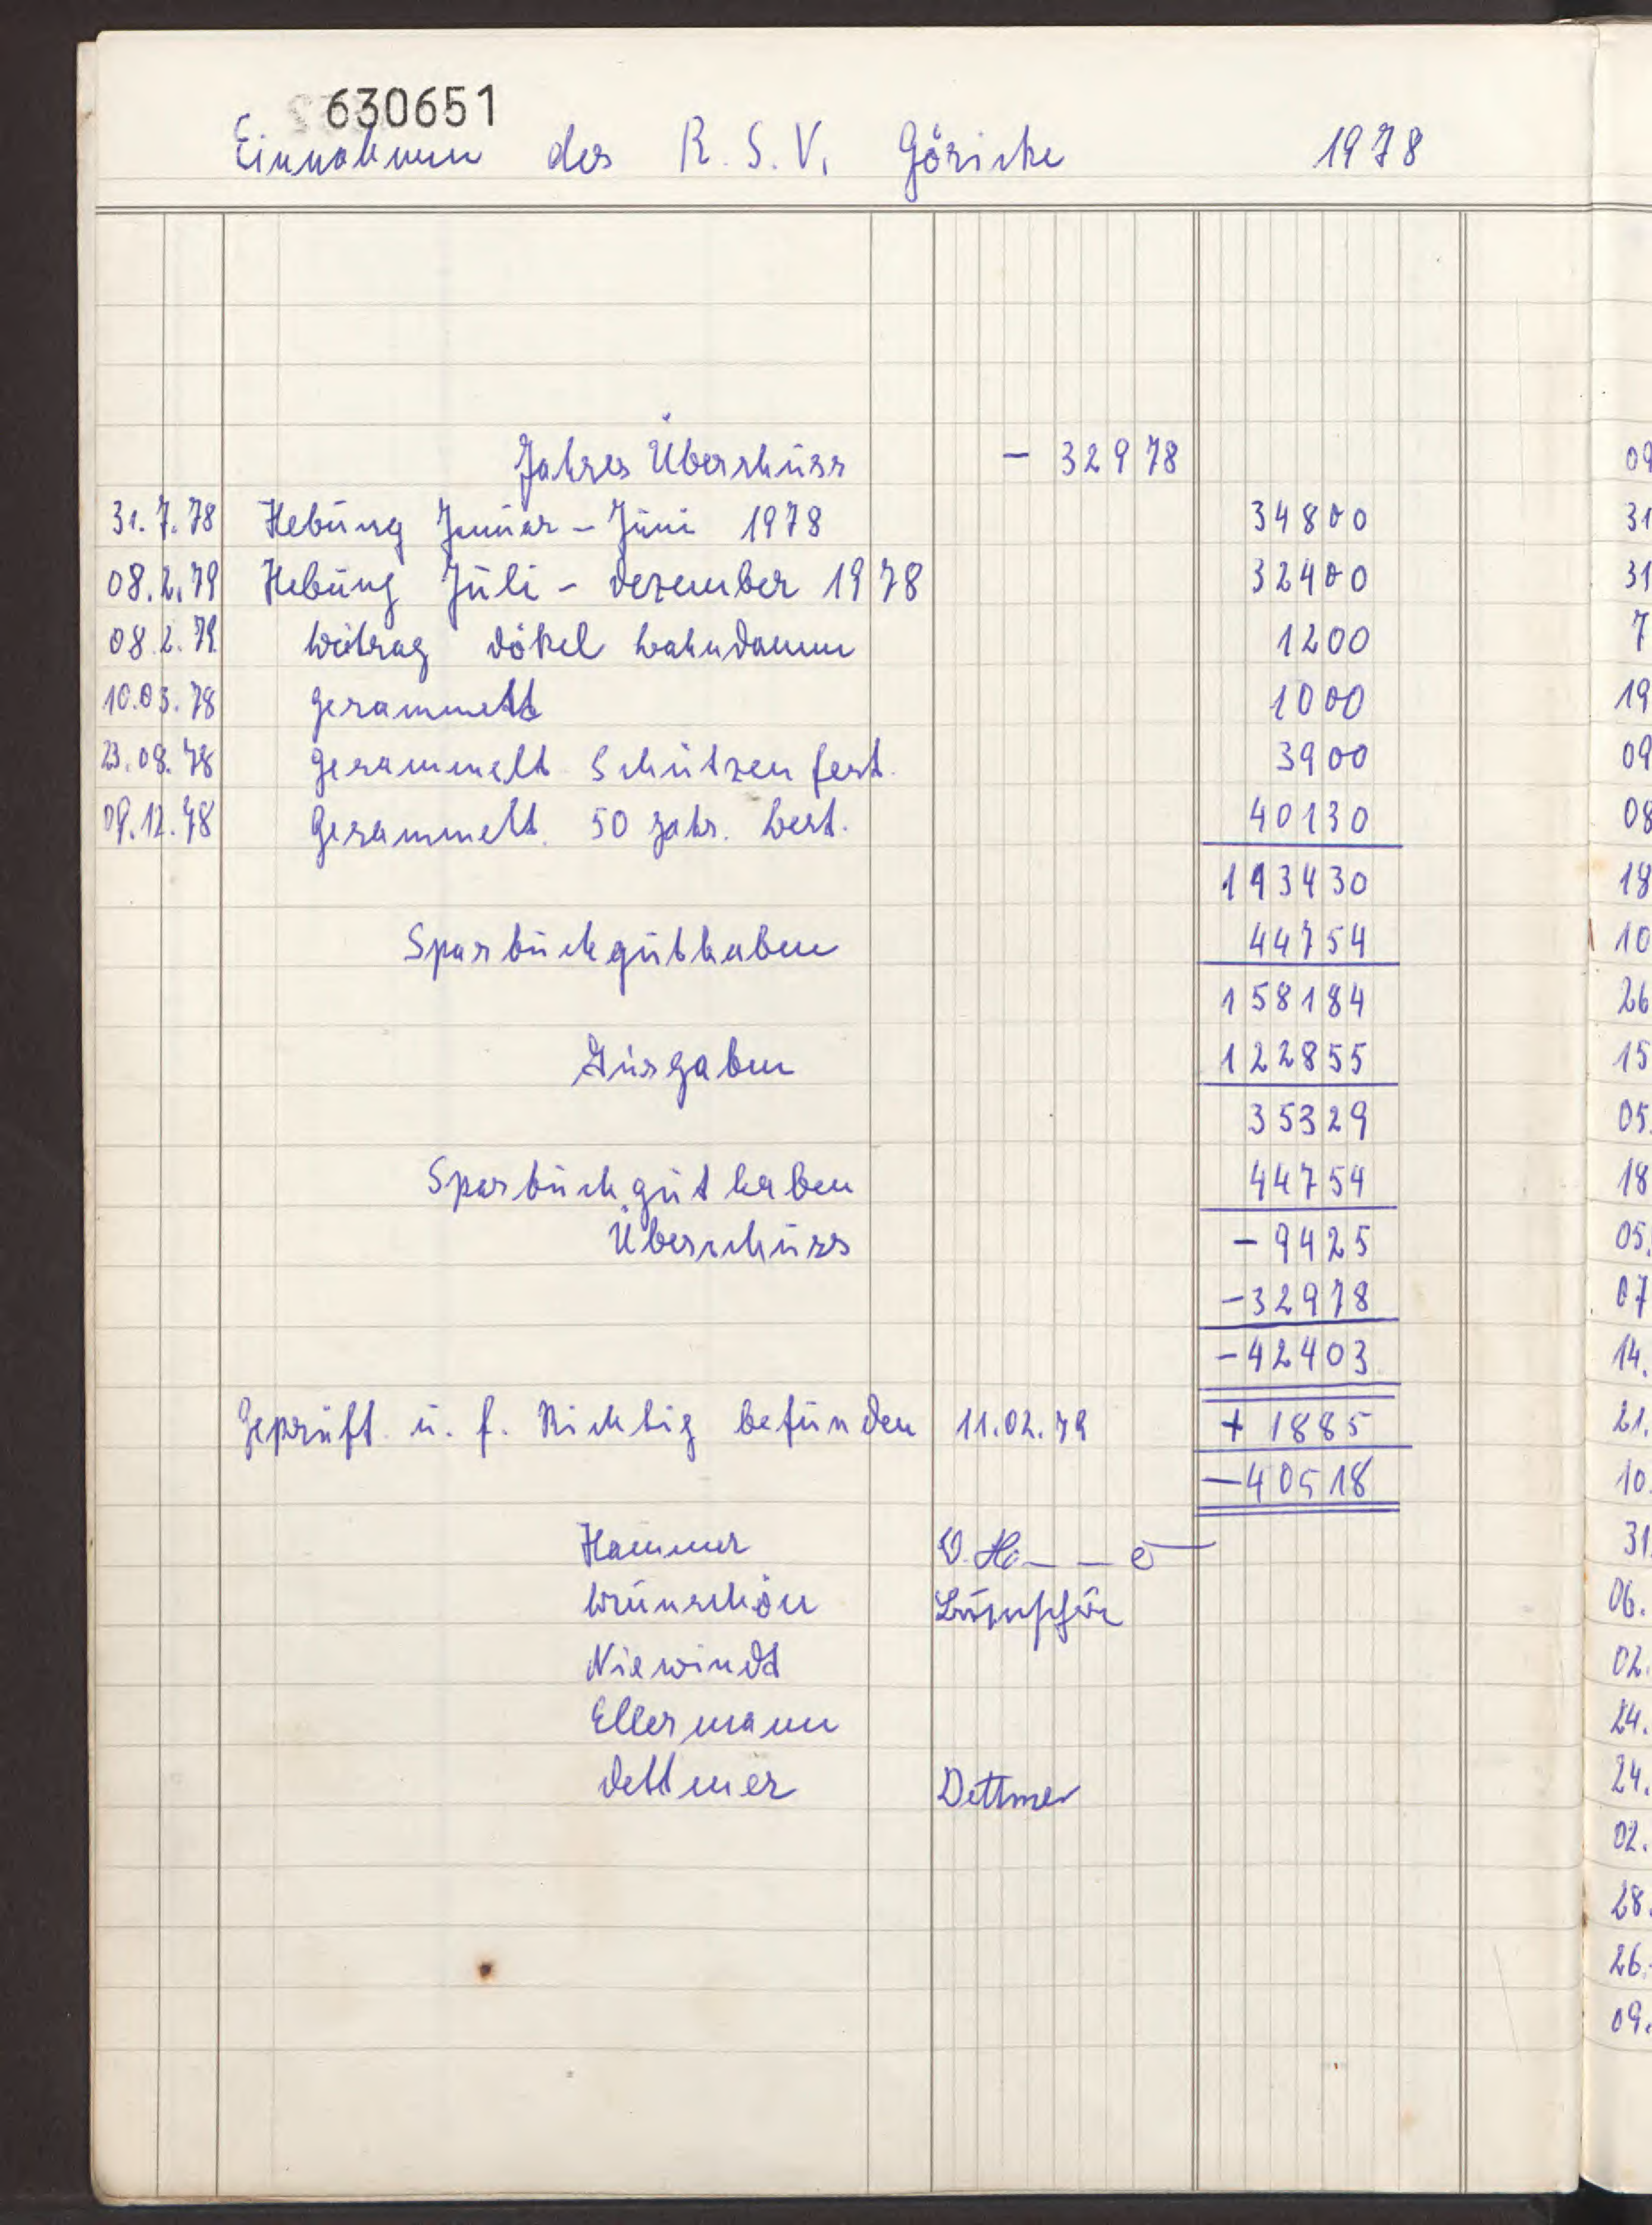 630651
Einnahmen des R.S.V. Göricke 1978
Jahres Überschuss - 32978
31.7.78 Hebung Januar - Juni 1978 34800
08.2.79 Hebung Juli - Dezember 1978 32400
08.2.79 Beitrag Dökel Bahndamm 1200
10.03.78 gesammelt 1000
23.08.78 gesammelt Schützenfest. 3900
09.12.78 Gesammelt. 50 Jahr. Best. 40130
113430
Sparbuchguthaben 44754
158184
Ausgaben 122855
35329
Sparbuchguthaben 44754
Überschuss - 9425
- 32978
- 42403
Geprüft u. f. Richtig befunden 11.02.79 + 1885
- 40518
Hammer
Brünschön
Niewindt
Ellermann
Dettmer Dettmer
09
31
31
7
19
09
08
18
10
26
15
05
18
05.
07
14.
21.
10.
31
06.
02.
24.
24.
02.
28.
26.
09.